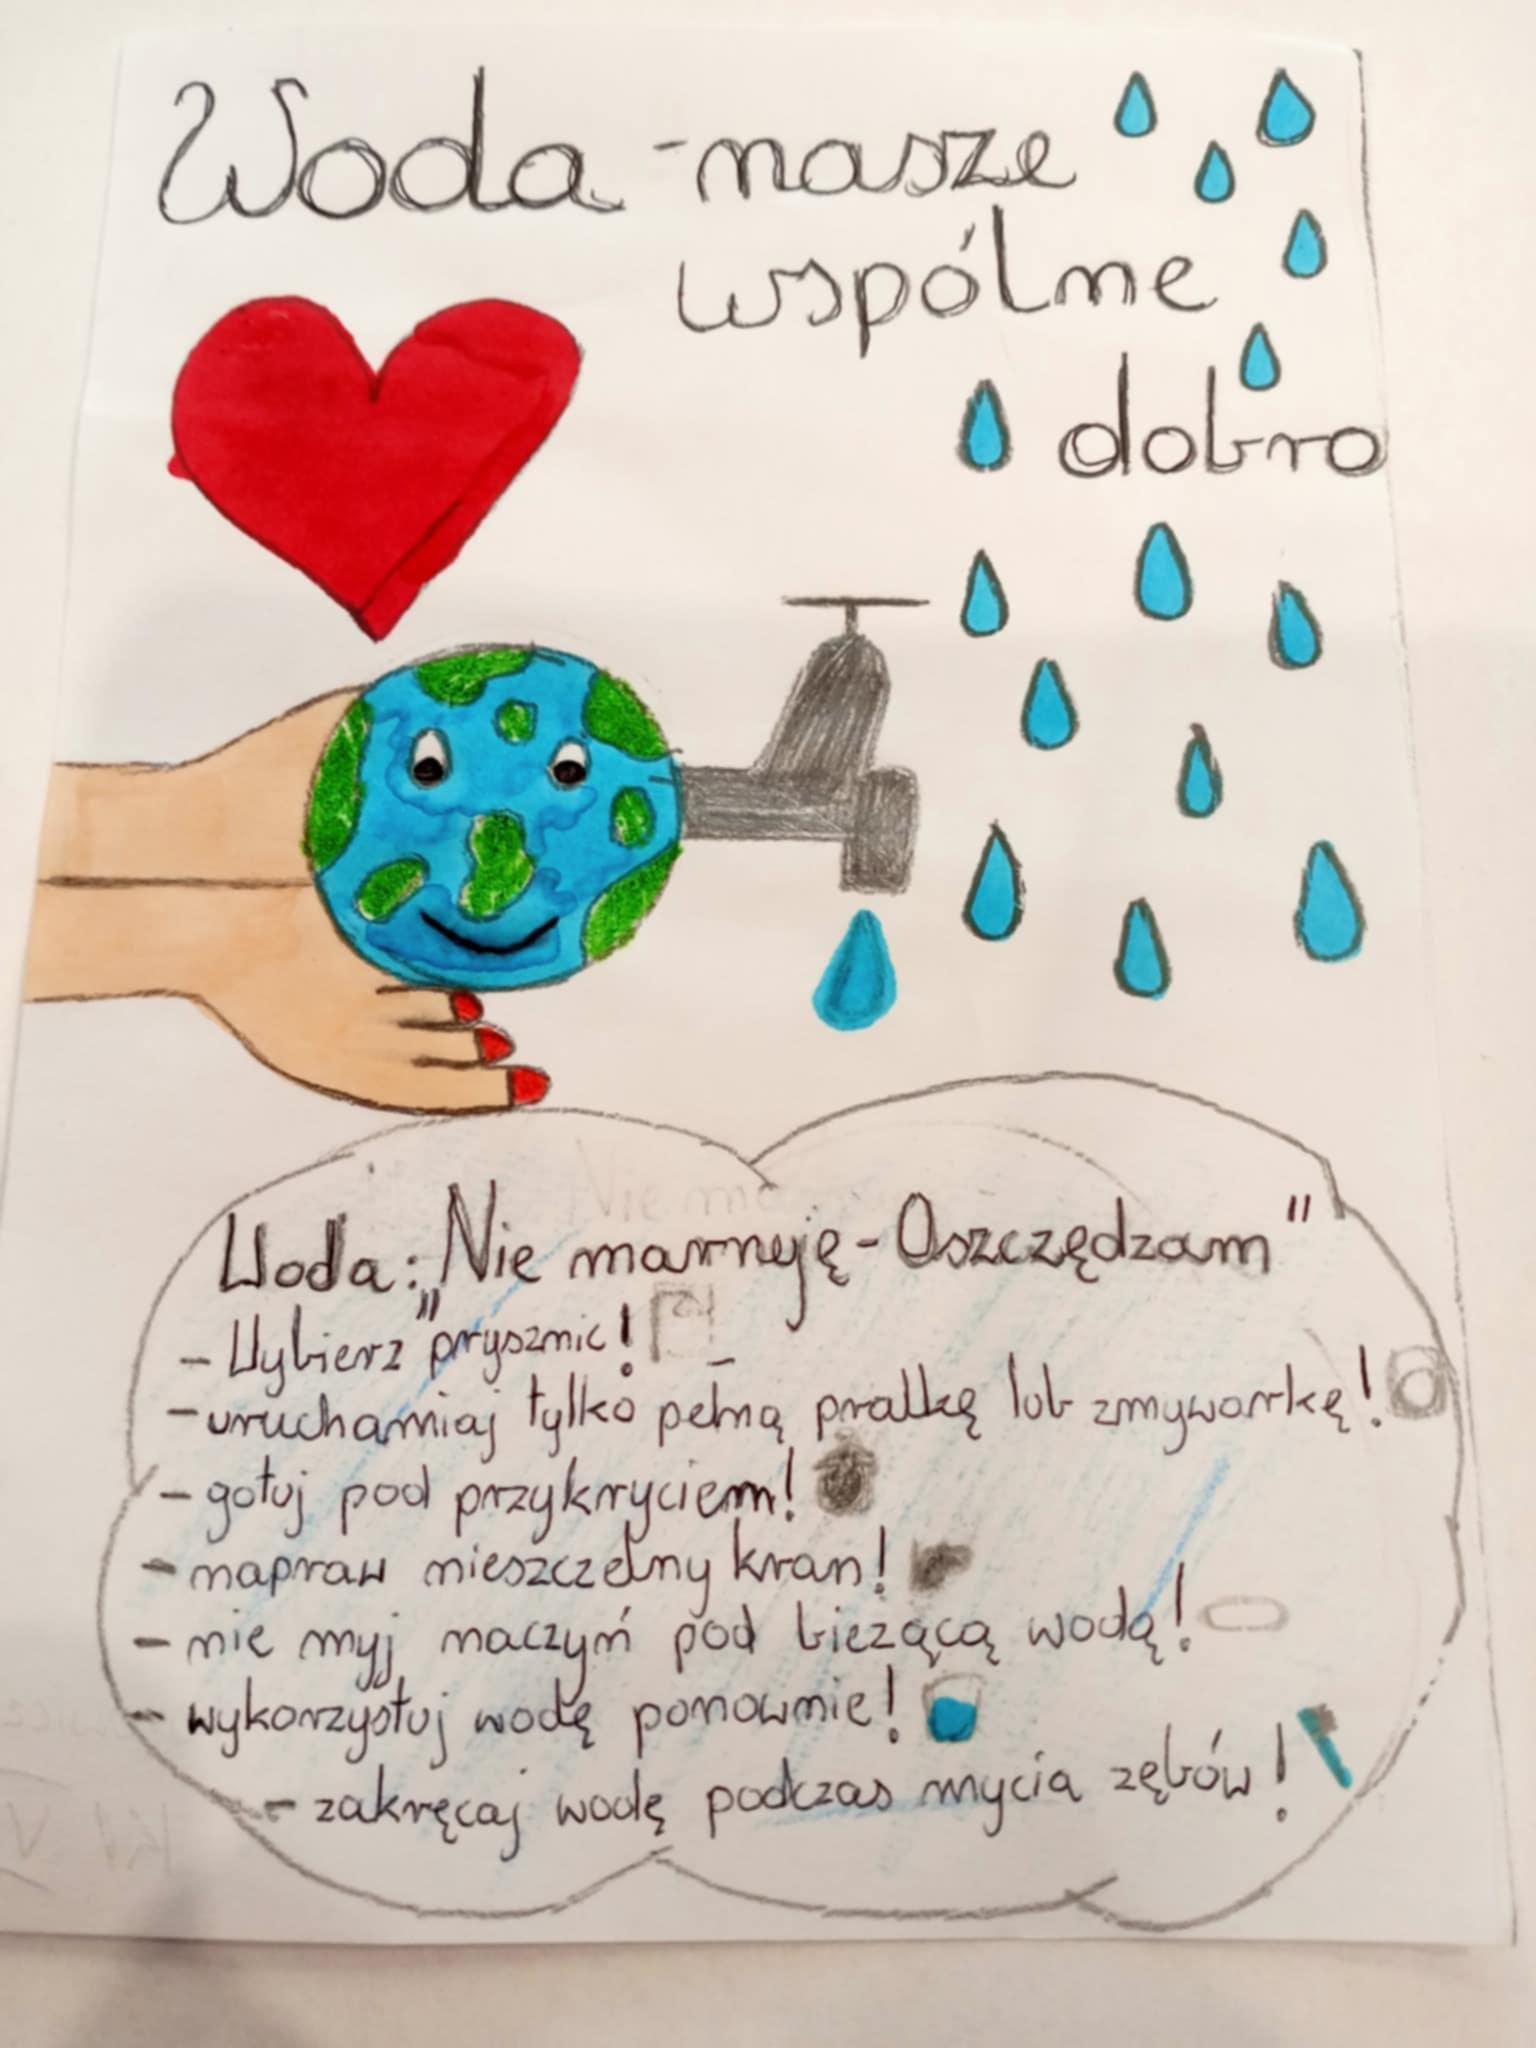 Woda - nasze
wspólne
dobro
Woda: „Nie marnuję - Oszczędzam"
- Wybierz prysznic!
- uruchamiaj tylko pełną pralkę lub zmywarkę!
- gotuj pod przykryciem!
- napraw nieszczelny kran!
- nie myj naczyń pod bieżącą wodą!
- wykorzystuj wodę ponownie!
- zakręcaj wodę podczas mycia zębów!